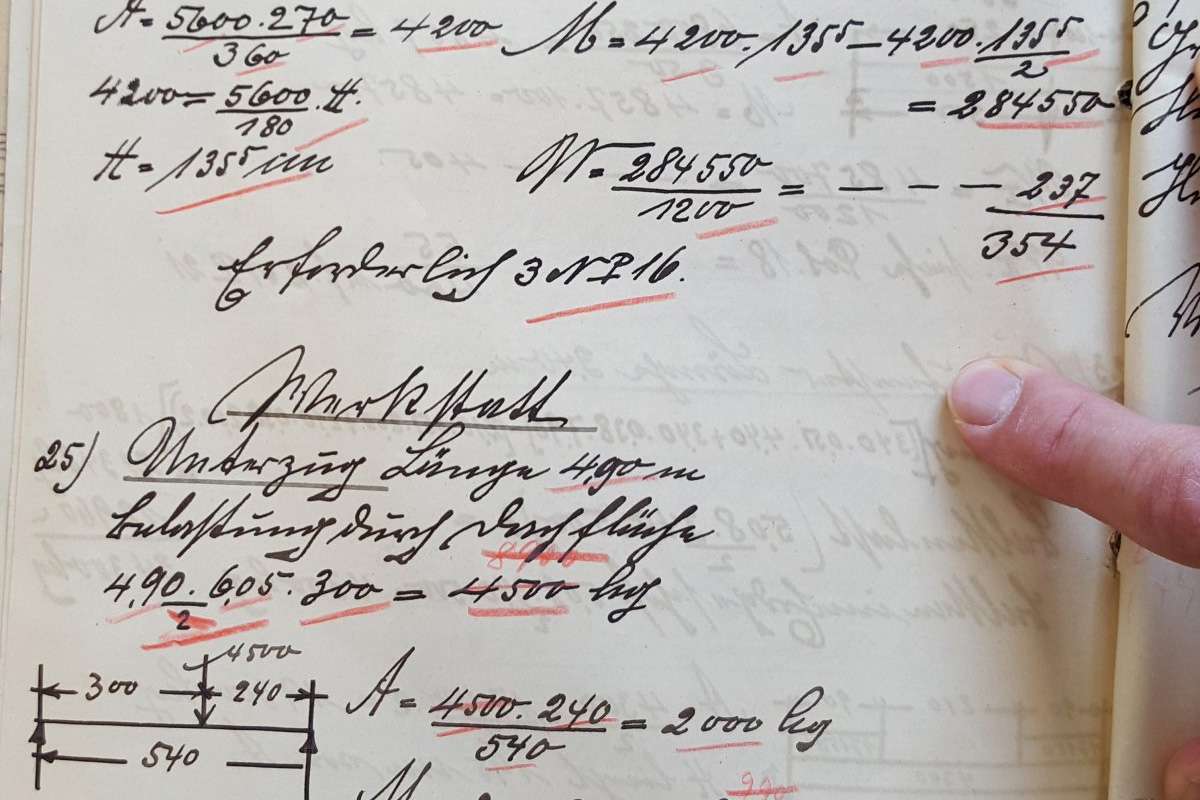 A = 5600.270 / 360 = 4200 M = 4200.135⁵ – 4200.135⁵ / 2
4200 = 5600 / 180 . H.
= 284550
H = 135⁵ cm
W = 284550 / 1200 = – – – – 237
354
Erforderlich 3 NP 16.
Werkstatt
25) Unterzug Länge 4,90 m
Belastung durch Dachfläche
8900
4,90 . 6,05 . 300 / 2 = 4500 kg
4500
300 240
540
A = 4500.240 / 540 = 2000 kg
M